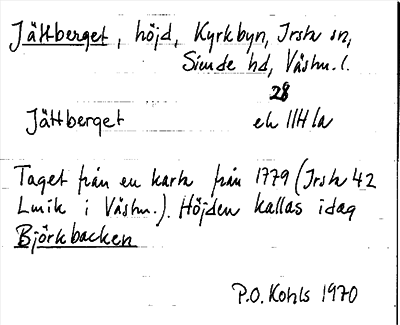 Jättberget, höjd, Kyrkbyn, Irsta sn,
Siende hd, Västm. l.
28
Jättberget ek 11H 1a
Taget från en karta från 1779 (Irsta 42
Lmfk i Västm.). Höjden kallas idag
Björkbacken
P.O. Kohls 1970